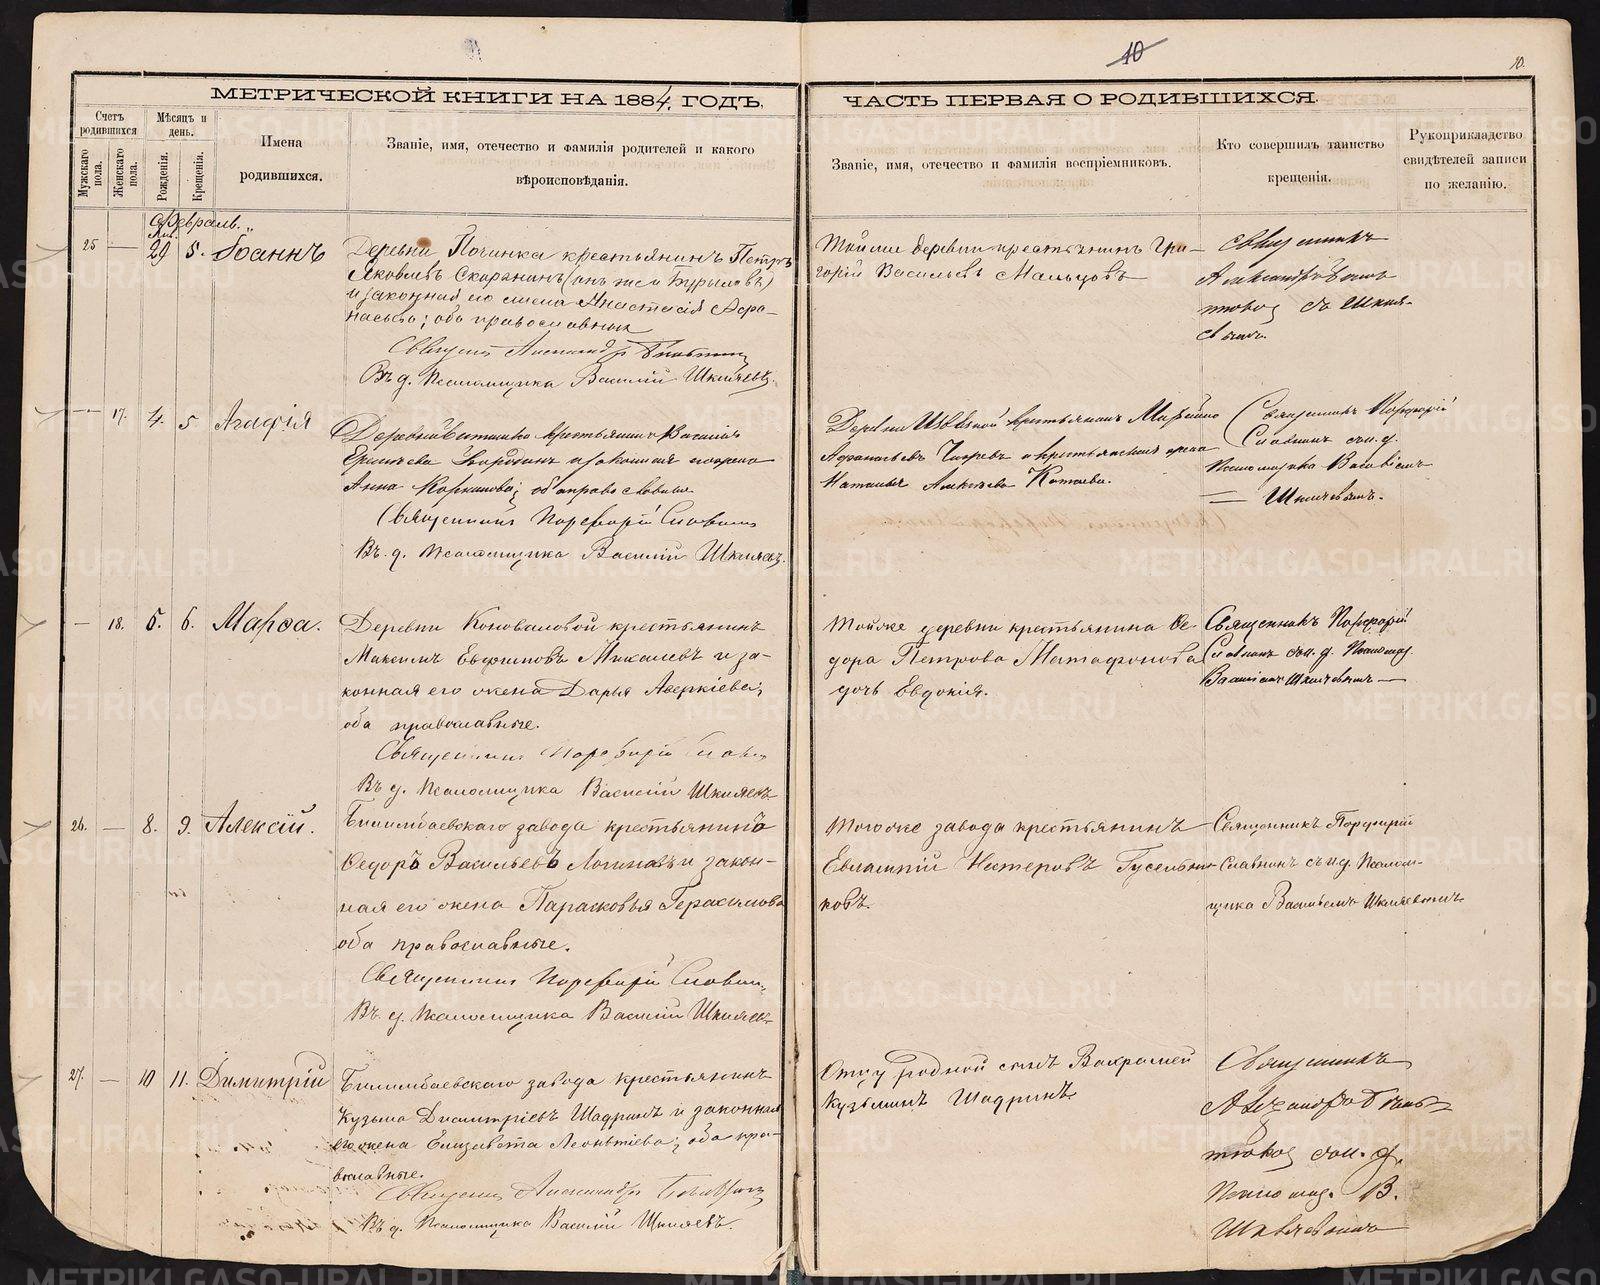 10
10.
МЕТРИЧЕСКОЙ КНИГИ НА 1884. ГОДЪ,
ЧАСТЬ ПЕРВАЯ О РОДИВШИХСЯ.
Счетъ родившихся
Мужскаго пола.
Женскаго пола.
Мѣсяцъ и день.
Рожденія.
Крещенія.
Имена
родившихся.
Званіе, имя, отечество и фамилія родителей и какого
вѣроисповѣданія.
Званіе, имя, отечество и фамилія воспріемниковъ.
Кто совершилъ таинство
крещенія.
Рукоприкладство
свидѣтелей записи
по желанію.
Февраль.
25 — 29 5. Іоаннъ
Деревни Починка крестьянинъ Петръ
Яковлевъ Скорынинъ (онъ же и Бурылевъ)
и законная его жена Анастасія Афа-
насьева; оба православные
Священ. Александръ
Въ д. Псаломщика Василій Шкляевъ.
Той же деревни крестьянинъ Гри-
горій Васильевъ Мальцовъ
Священникъ
Александръ
съ Шкля-
евымъ.
— 17. 4. 5 Агафія
крестьянинъ Василій
и законная
Анна; оба православные
Священникъ Порфирій Славнин
Въ д. Псаломщика Василій Шкляевъ.
Деревни крестьянинъ
Афанасьевъ
Наталья Алексѣева Котова.
Священникъ Порфирій
Славнинъ съ и. д.
Псаломщика Василіемъ
Шкляевымъ.
— 18. 5. 6. Марѳа.
Деревни Коноваловой крестьянинъ
Максимъ Евфимовъ Михалевъ и за-
конная его жена Дарья Аверкіева;
оба православные.
Священникъ Порфирій Славн
Въ д. Псаломщика Василій Шкляевъ
Той же деревни крестьянина Ѳе-
дора Петрова Матафонова
дочь Евдокія.
Священникъ Порфирій
Славнинъ съ и. д. Псаломщ.
Василіемъ Шкляевымъ —
26. — 8. 9. Алексій.
Билимбаевскаго завода крестьянинъ
Ѳедоръ Васильевъ Логиновъ и закон-
ная его жена Парасковья Герасимова
оба православные.
Священникъ Порфирій Славнин,
Въ. д. Псаломщика Василій Шкляевъ
Того же завода крестьянинъ
Евлампій Нестеровъ Гусельни-
ковъ.
Священникъ Порфирій
Славнинъ съ и. д. Псалом-
щика Василіемъ Шкляевымъ
27. — 10 11. Димитрій
Билимбаевскаго завода крестьянинъ
Кузьма Димитріевъ Шадринъ и законная
его жена Елизавета Леонтіева; оба пра-
вославные.
Священ. Александръ
Въ д. Псаломщика Василій Шкляевъ.
Отцу родной сынъ Вахрамей
Кузьминъ Шадринъ
Священникъ
Александръ
съ и. д.
Псаломщ. В.
Шкляевымъ
METRIKI.GASO-URAL.RU